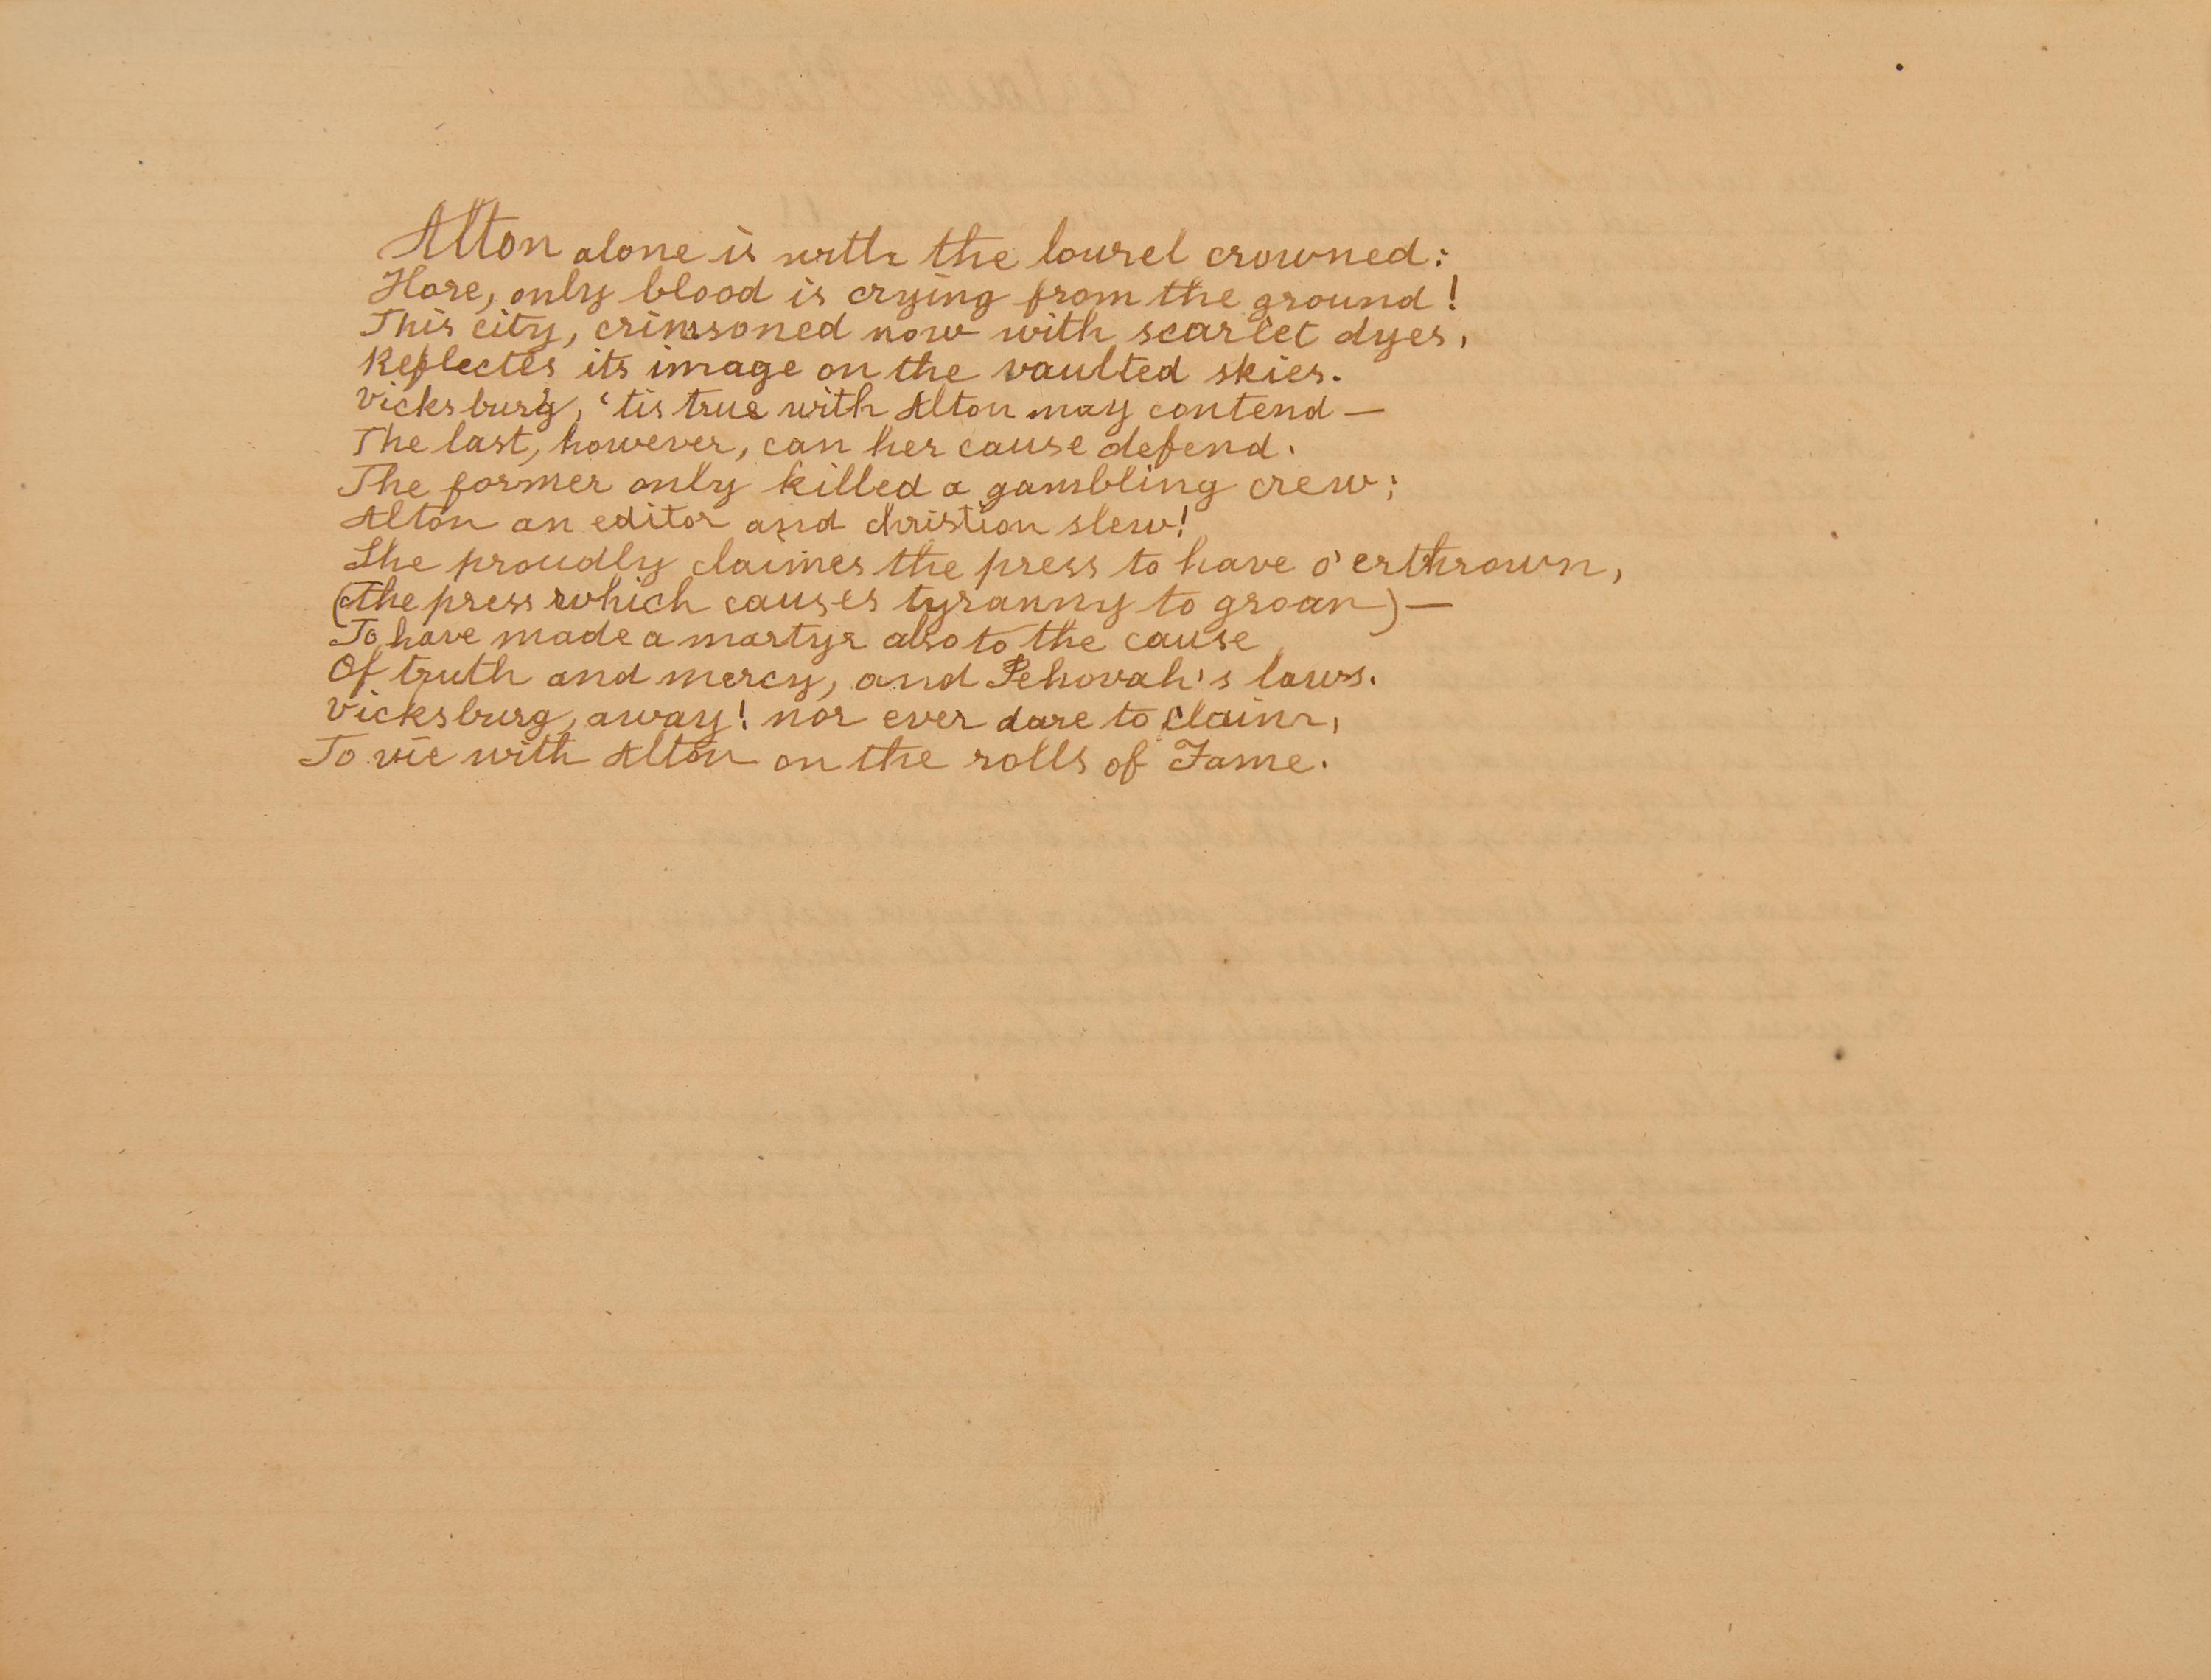 Alton alone is with the laurel crowned:
Here, only blood is crying from the ground!
This city, crimsoned now with scarlet dyes,
Reflectes its image on the vaulted skies.
Vicksburg, 'tis true with Alton may contend —
The last, however, can her cause defend.
The former only killed a gambling crew;
Alton an editor and christian slew!
She proudly claimes the press to have o'erthrown,
(the press which causes tyranny to groan) —
To have made a martyr also to the cause
Of truth and mercy, and Jehovah's laws.
Vicksburg, away! nor ever dare to claim,
To vie with Alton on the rolls of Fame.